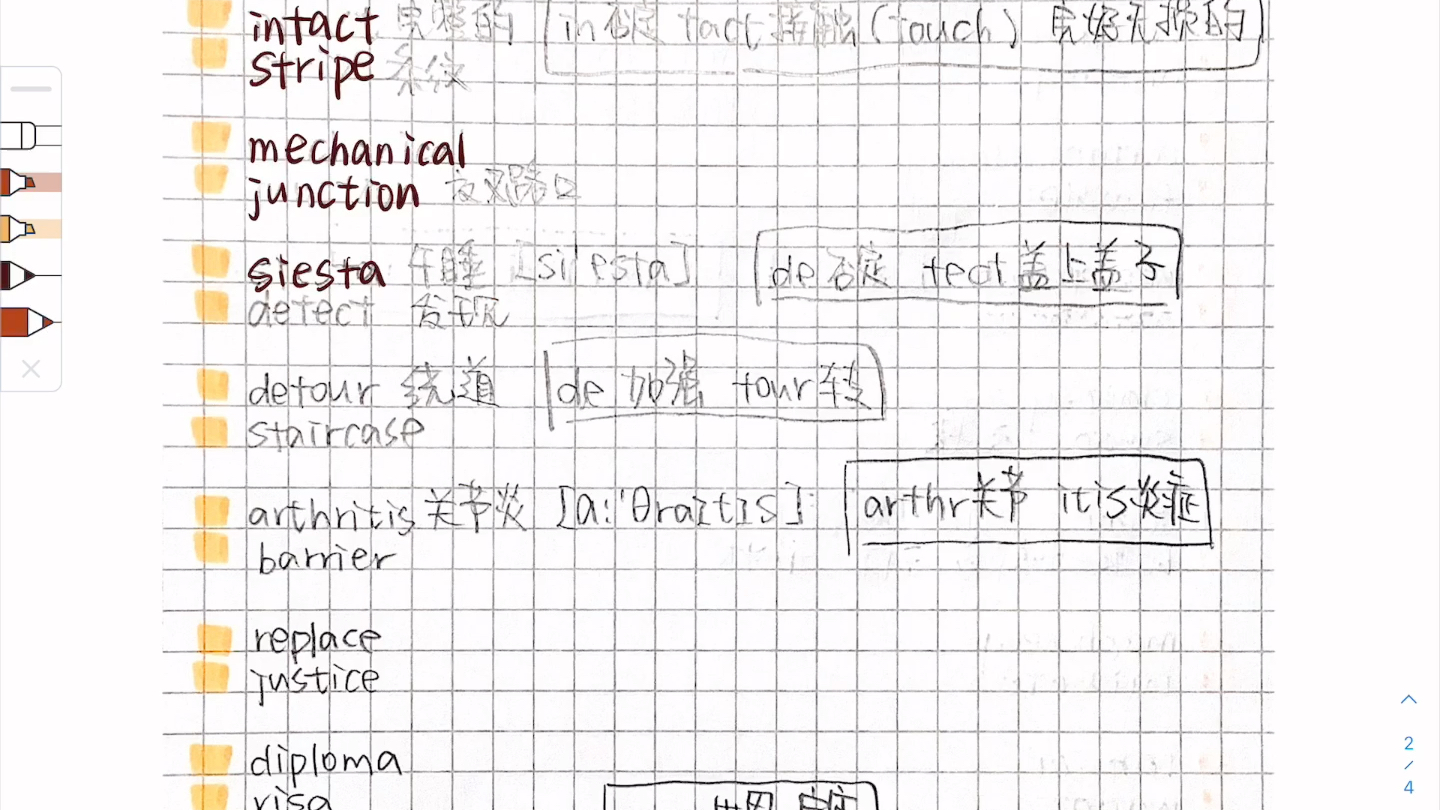 intact 完整的 in 否定 tact 接触 (touch) 完好无损的
stripe 条纹
mechanical
junction 交叉路口
siesta 午睡 [si'esta] de 否定 tect 盖上盖子
detect 发现
detour 绕道 de 加强 tour 转
staircase
arthritis 关节炎 [a:'θraItIs] arthr 关节 itis 炎症
barrier
replace
justice
diploma
2
/
4